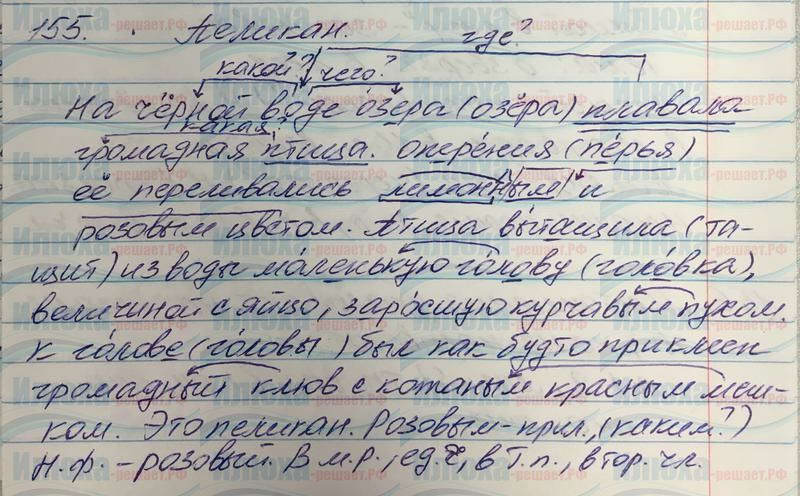 155. Пеликан.
где?
какой? чего?
На чёрной воде озера (озёра) плавала
какая?
громадная птица. оперения (перья)
её переливались лимонным и
розовым цветом. Птица вытащила (та-
щит) из воды маленькую голову (головка),
величиной с яйцо, заросшую курчавым пухом.
К голове (головы) был как будто приклеен
громадный клюв с кожаным красным меш-
ком. Это пеликан. Розовым - прил., (каким?)
Н.ф. - розовый. В м.р., ед.ч, в Т.п., в тор. чл.